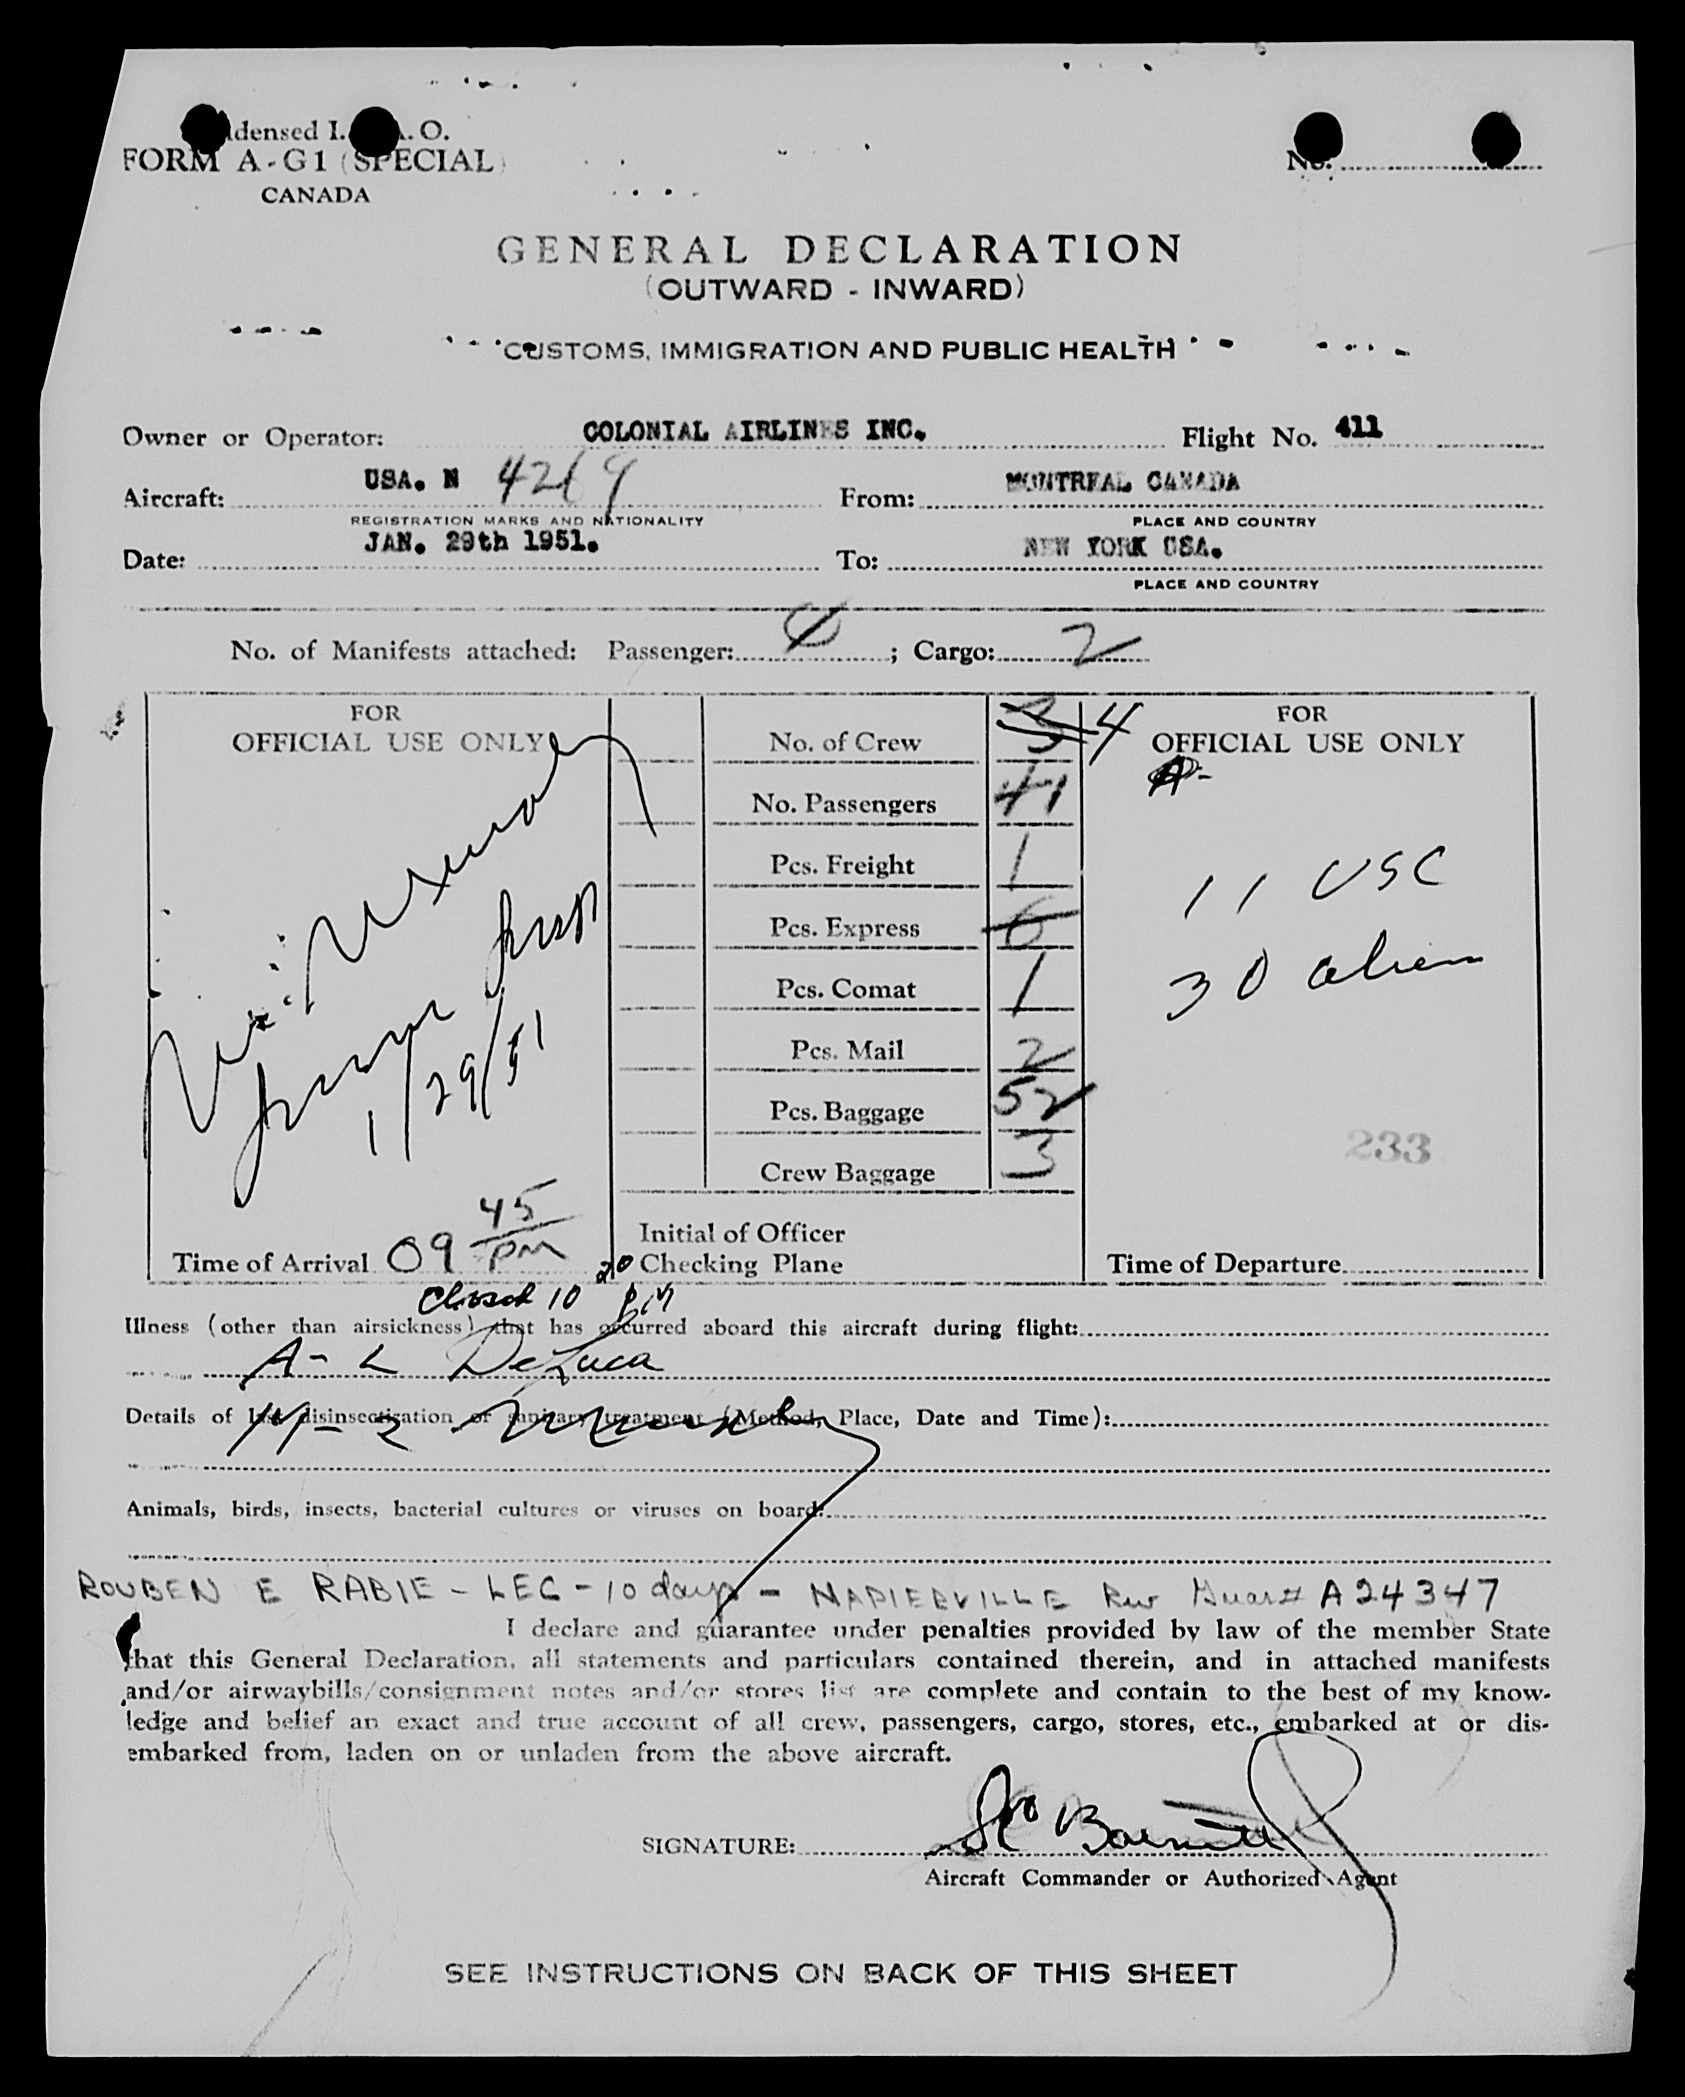 densed I. A. O.
FORM A-G1 (SPECIAL)
CANADA
No.
GENERAL DECLARATION
(OUTWARD - INWARD)
CUSTOMS, IMMIGRATION AND PUBLIC HEALTH
Owner or Operator: COLONIAL AIRLINES INC. Flight No. 411
Aircraft: USA. N 4269 From: MONTREAL CANADA
REGISTRATION MARKS AND NATIONALITY PLACE AND COUNTRY
Date: JAN. 29th 1951. To: NEW YORK USA.
PLACE AND COUNTRY
No. of Manifests attached: Passenger: 0 ; Cargo: 2
FOR
OFFICIAL USE ONLY
1/29/51
Time of Arrival 09 45 PM
No. of Crew 3 4
No. Passengers 41
Pcs. Freight 1
Pcs. Express 6
Pcs. Comat 1
Pcs. Mail 2
Pcs. Baggage 52
Crew Baggage 3
Initial of Officer
Checking Plane
FOR
OFFICIAL USE ONLY
A-
11 USC
30 alien
233
Time of Departure
Closed 10 20 PM
Illness (other than airsickness) that has occurred aboard this aircraft during flight:
A- L DeLuca
Details of last disinsectisation or sanitary treatment (Method, Place, Date and Time):
Animals, birds, insects, bacterial cultures or viruses on board:
ROUBEN E RABIE - LEG - 10 days - NAPIERVILLE A24347
I declare and guarantee under penalties provided by law of the member State
that this General Declaration, all statements and particulars contained therein, and in attached manifests
and/or airwaybills/consignment notes and/or stores list are complete and contain to the best of my know-
ledge and belief an exact and true account of all crew, passengers, cargo, stores, etc., embarked at or dis-
embarked from, laden on or unladen from the above aircraft.
SIGNATURE:
Aircraft Commander or Authorized Agent
SEE INSTRUCTIONS ON BACK OF THIS SHEET